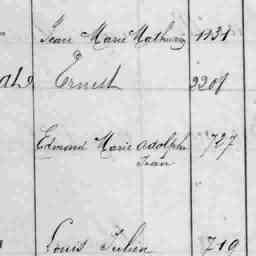 Jean Marie Mathurin 1131
Ernest 2201
Edmond Marie Adolphe 727
Jean
Louis Julien 719